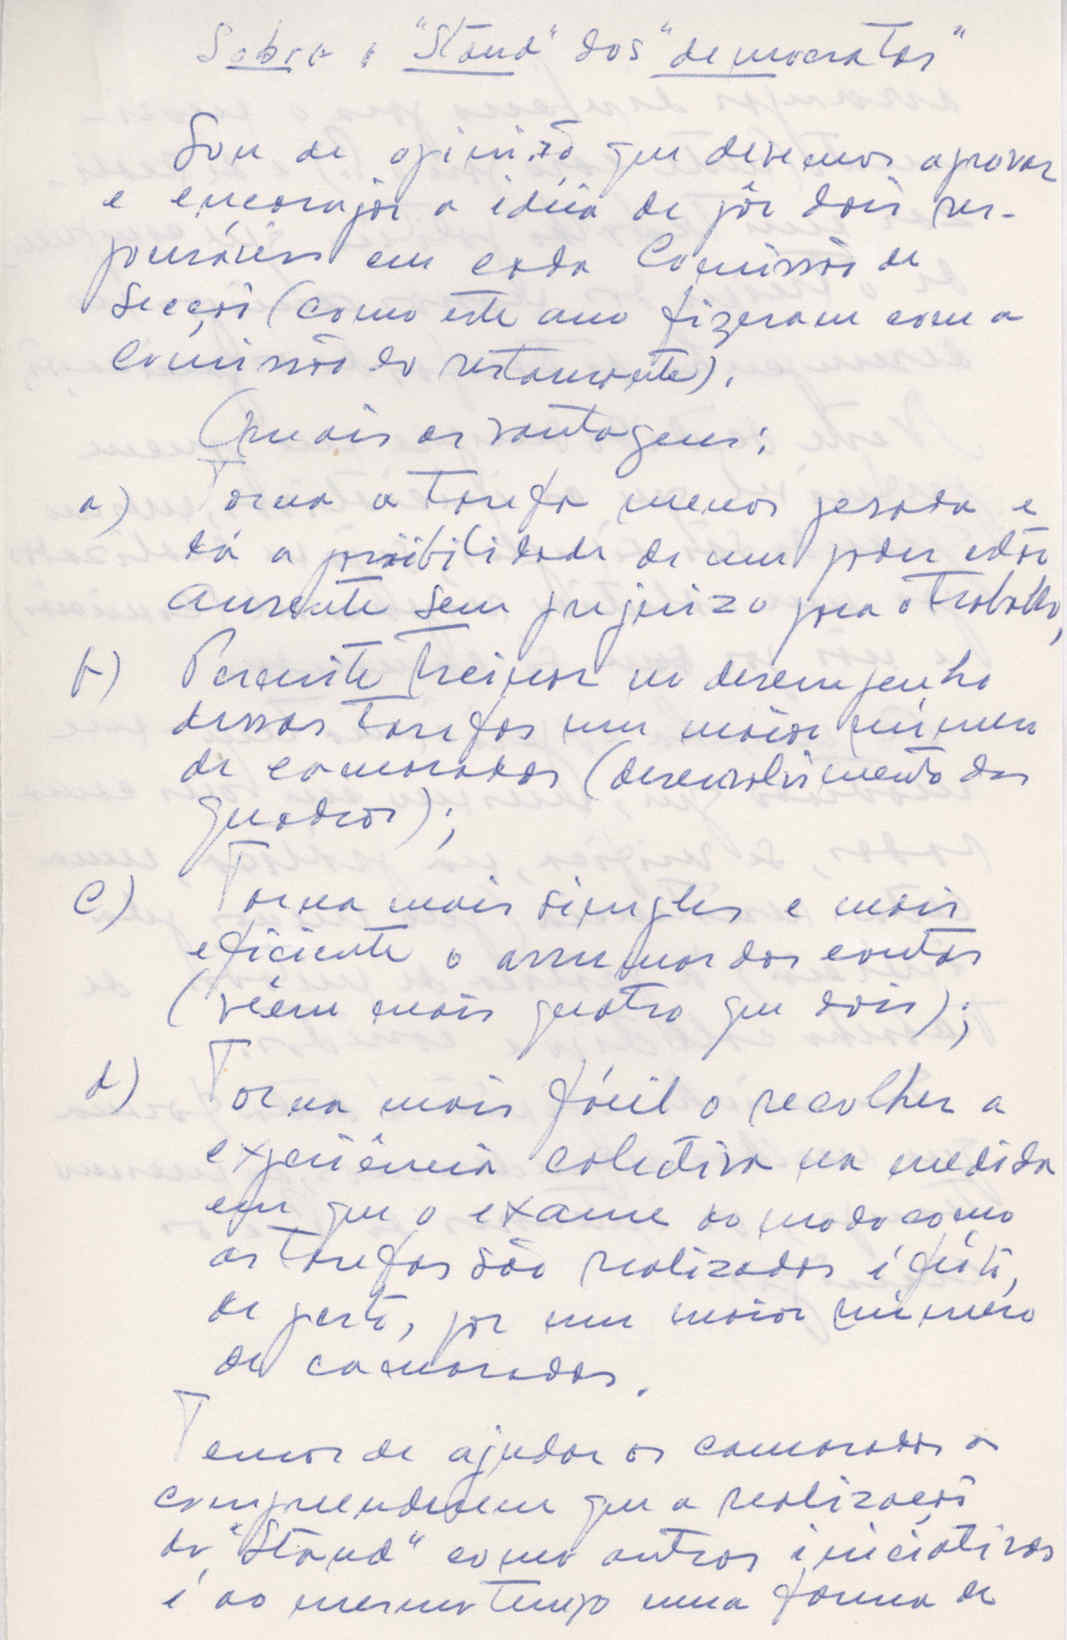 Sobre o "Stand" dos "democratas"
Sou de opinião que devemos aprovar
e encorajar a idéia de pôr dois res-
ponsáveis em cada Comissão de
Secção (como este ano fizeram com a
Comissão do restaurante).
Quais as vantagens:
a) Torna a tarefa menos pesada e
dá a possibilidade de um poder estar
ausente sem prejuizo para o trabalho,
b) Permite treinar no desempenho
dessas tarefas um maior número
de camaradas (desenvolvimento dos
quadros);
c) Torna mais simples e mais
eficiente o arrumar das contas
(vêem mais quatro que dois);
d) Torna mais fácil o recolher a
experiência colectiva na medida
em que o exame do modo como
as tarefas são realizadas é feito,
de perto, por um maior número
de camaradas.
Temos de ajudar os camaradas a
compreenderem que a realização
do "Stand" como outras iniciativas
é ao mesmo tempo uma forma de